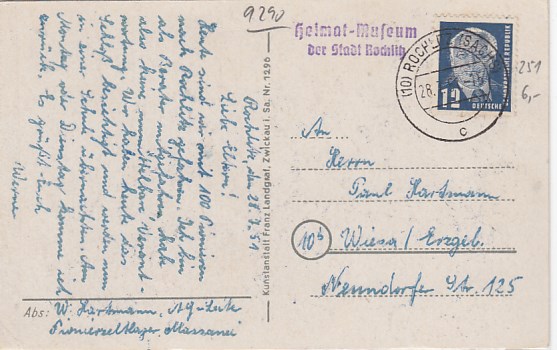 9290
Heimat-Museum
der Stadt Rochlitz
(10) ROCHLITZ (SACHS)
28.
c
12
DEUTSCHE
REPUBLIK
251
6,-
Rochlitz, den 27.7.51
Liebe Eltern!
Heute sind wir mit 100 Pionieren
nach Rochlitz gefahren. Ich bin
als Berater mitgefahren, habe
also keine unmittelbare Verant-
wortung. Wir haben heute das
Schloß besichtigt und werden nun
in einer Schule übernachten. Am
Montag oder Dienstag komme ich
zurück. Es grüßt Euch
Werner
Abs: W. Hartmann, AG-Leite
Pionierzeltlager, Massanei
Kunstanstalt Franz Landgraf, Zwickau i. Sa, Nr. 1296
An
Herrn
Paul Hartmann
10b Wiesa/Erzgeb.
Neundorfer Str. 125